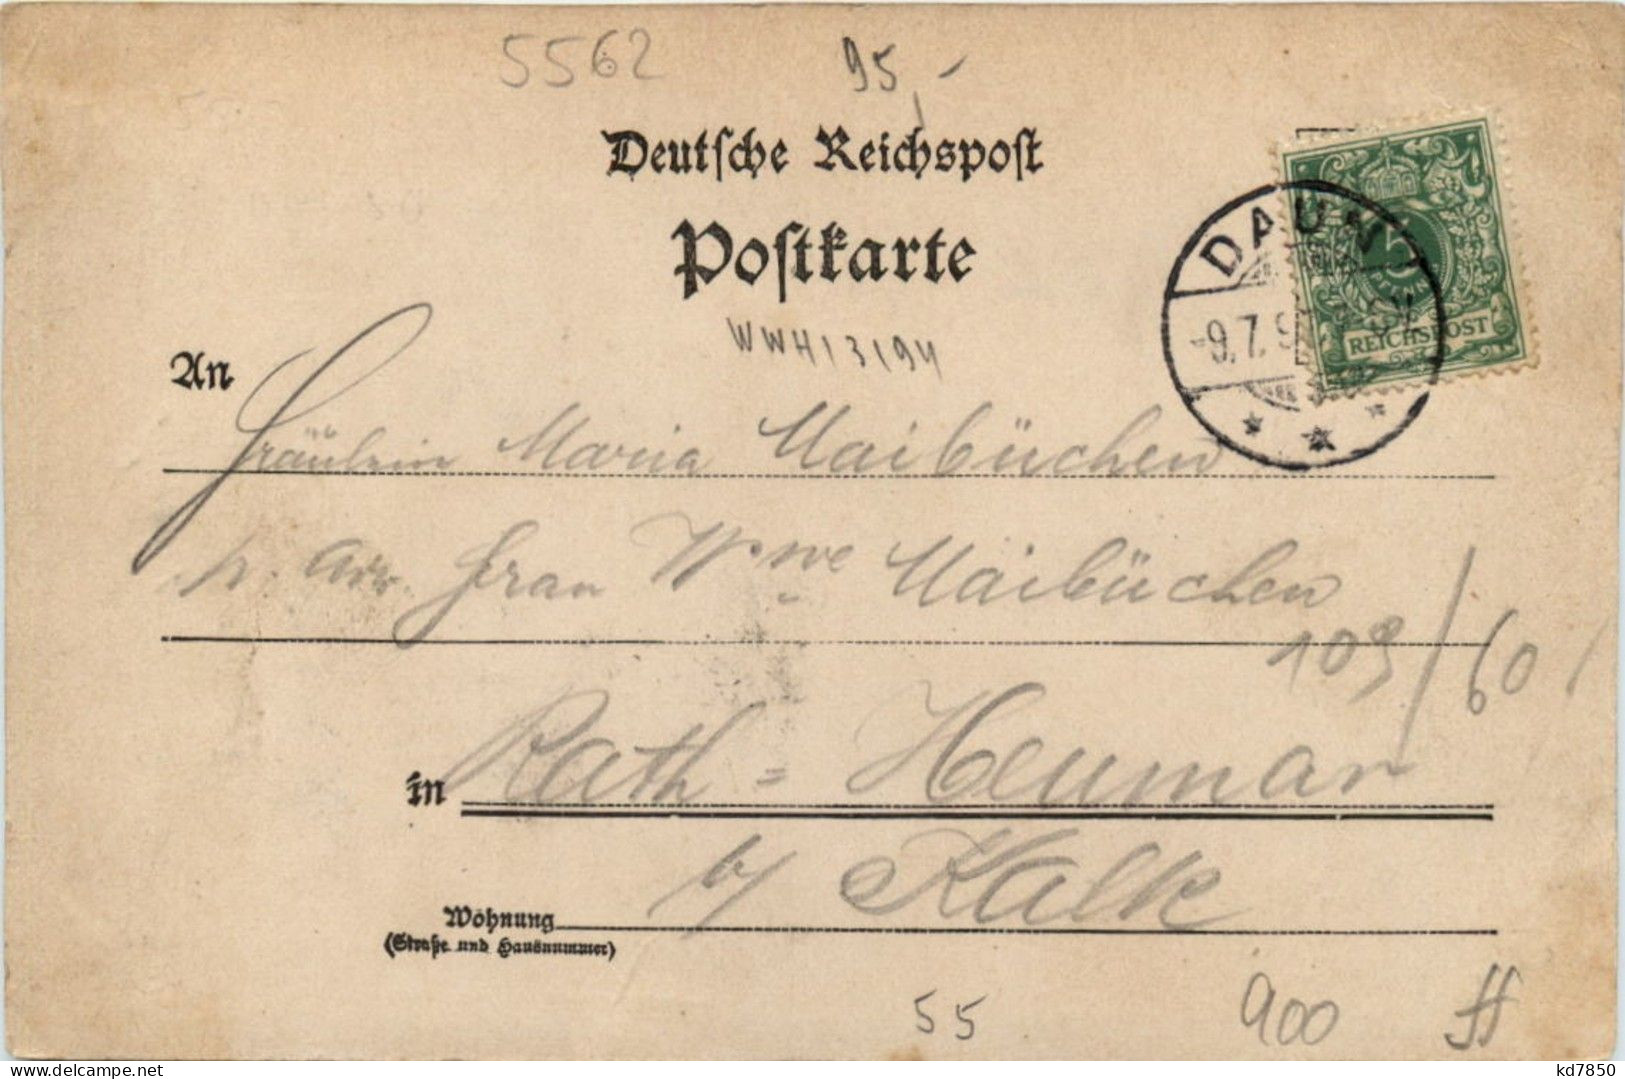 5562 95,-
Deutsche Reichspost
Postkarte
DAUN
-9.7.9
5
PFENNIG
REICHSPOST
WWH13194
An Fräulein Maria Maibüchen
p. Adr. Frau Wwe Maibüchen
109/60
in Rath-Heumar
b/ Kalk
Wohnung
(Straße und Hausnummer)
55 900
kd7850